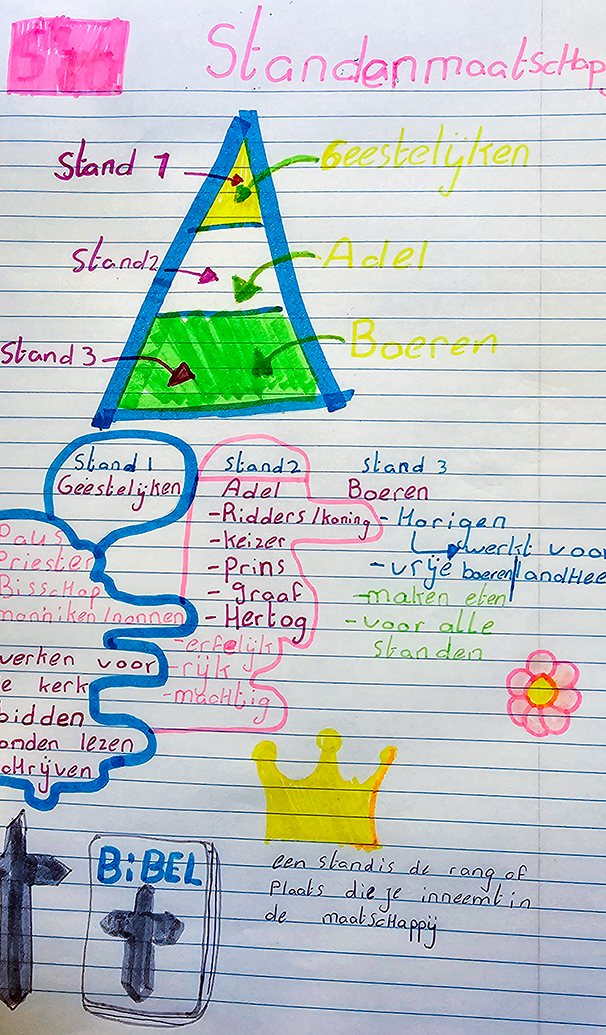 Standenmaatschapp
Stand 1
Geestelijken
Stand 2
Adel
Stand 3
Boeren
Stand 1
Geestelijken
Paus
Priester
Bisschap
monniken/nonnen
werken voor
e kerk
bidden
onden lezen
chrijven
Stand 2
Adel
- Ridders/koning
- keizer
- prins
- graaf
- Hertog
- erfelijk
- rijk
- machtig
Stand 3
Boeren
- Horigen
werkt voor
landhee
- vrije boeren
- maken eten
- voor alle
standen
BiBEL
een stand is de rang of
Plaats die je inneemt in
de maatschappij